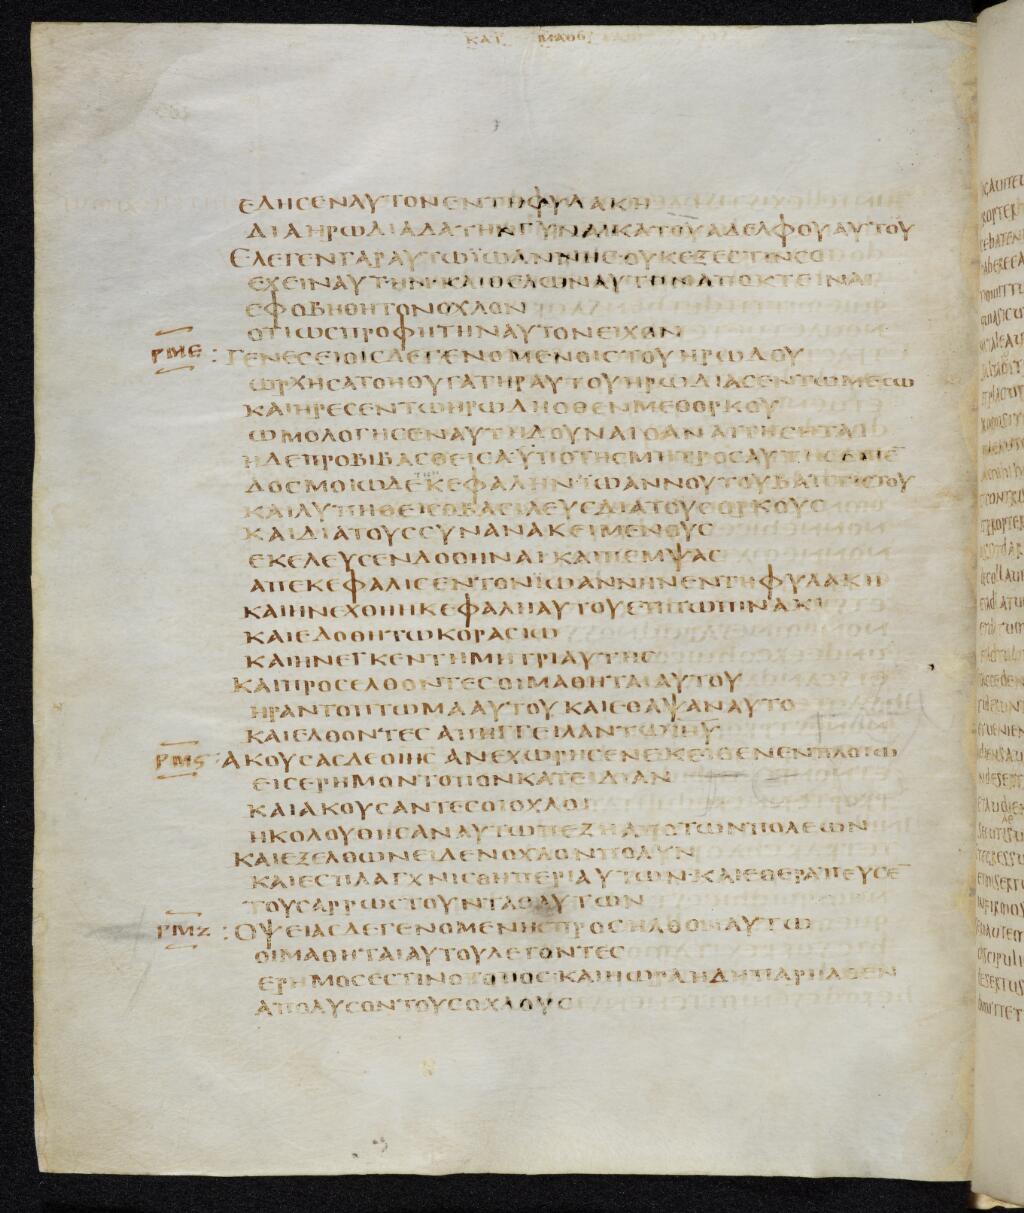 ΚΑΤ ΜΑΘΘ
ΕΔΗΣΕΝΑΥΤΟΝΕΝΤΗΦΥΛΑΚΗ
ΔΙΑΗΡΩΔΙΑΔΑΤΗΝΓΥΝΑΙΚΑΤΟΥΑΔΕΛΦΟΥΑΥΤΟΥ
ΕΛΕΓΕΝΓΑΡΑΥΤΩΪΩΑΝΝΗΣ·ΟΥΚΕΞΕΣΤΙΝΣΟ
ΕΧΕΙΝΑΥΤΗΝ·ΚΑΙΘΕΛΩΝΑΥΤΟΝΑΠΟΚΤΕΙΝΑΙ
ΕΦΟΒΗΘΗΤΟΝΟΧΛΟΝ
ΟΤΙΩΣΠΡΟΦΗΤΗΝΑΥΤΟΝΕΙΧΟΝ
ΡΜΕ : ΓΕΝΕΣΕΙΟΙΣΔΕΓΕΝΟΜΕΝΟΙΣΤΟΥΗΡΩΔΟΥ
ΩΡΧΗΣΑΤΟΗΘΥΓΑΤΗΡΑΥΤΟΥΗΡΩΔΙΑΣΕΝΤΩΜΕΣΩ
ΚΑΙΗΡΕΣΕΝΤΩΗΡΩΔΗΟΘΕΝΜΕΘΟΡΚΟΥ
ΩΜΟΛΟΓΗΣΕΝΑΥΤΗΔΟΥΝΑΙΟΑΝΑΙΤΗΣΗΤΑΙ
ΗΔΕΠΡΟΒΙΒΑΣΘΕΙΣΑΥΠΟΤΗΣΜΗΤΡΟΣΑΥΤΗΣΕΙΠΕ̅
ΔΟΣΜΟΙΩΔΕΚΕΦΑΛΗΝΪΩΑΝΝΟΥΤΟΥΒΑΠΤΙΣΤΟΥ
ΚΑΙΛΥΠΗΘΕΙΣΟΒΑΣΙΛΕΥΣΔΙΑΤΟΥΣΟΡΚΟΥΣ
ΚΑΙΔΙΑΤΟΥΣΣΥΝΑΝΑΚΕΙΜΕΝΟΥΣ
ΕΚΕΛΕΥΣΕΝΔΟΘΗΝΑΙΚΑΙΠΕΜΨΑΣ
ΑΠΕΚΕΦΑΛΙΣΕΝΤΟΝΪΩΑΝΝΗΝΕΝΤΗΦΥΛΑΚΗ
ΚΑΙΗΝΕΧΘΗΗΚΕΦΑΛΗΑΥΤΟΥΕΠΙΤΩΠΙΝΑΚΙ
ΚΑΙΕΔΟΘΗΤΩΚΟΡΑΣΙΩ
ΚΑΙΗΝΕΓΚΕΝΤΗΜΗΤΡΙΑΥΤΗΣ
ΚΑΙΠΡΟΣΕΛΘΟΝΤΕΣΟΙΜΑΘΗΤΑΙΑΥΤΟΥ
ΗΡΑΝΤΟΠΤΩΜΑΑΥΤΟΥΚΑΙΕΘΑΨΑΝΑΥΤΟ
ΚΑΙΕΛΘΟΝΤΕΣΑΠΗΓΓΕΙΛΑΝΤΩΙΗΥ
ΡΜϚ : ΑΚΟΥΣΑΣΔΕΟΙΗΣΑΝΕΧΩΡΗΣΕΝΕΚΕΙΘΕΝΕΝΠΛΟΙΩ
ΕΙΣΕΡΗΜΟΝΤΟΠΟΝΚΑΤΕΙΔΙΑΝ
ΚΑΙΑΚΟΥΣΑΝΤΕΣΟΙΟΧΛΟΙ
ΗΚΟΛΟΥΘΗΣΑΝΑΥΤΩΠΕΖΗΑΠΟΤΩΝΠΟΛΕΩΝ
ΚΑΙΕΞΕΛΘΩΝΕΙΔΕΝΟΧΛΟΝΠΟΛΥΝ
ΚΑΙΕΣΠΛΑΓΧΝΙΣΘΗΠΕΡΙΑΥΤΩΝ·ΚΑΙΕΘΕΡΑΠΕΥΣΕ̅
ΤΟΥΣΑΡΡΩΣΤΟΥΝΤΑΣΑΥΤΩΝ
ΡΜΖ : ΟΨΕΙΑΣΔΕΓΕΝΟΜΕΝΗΣΠΡΟΣΗΛΘΟΝΑΥΤΩ
ΟΙΜΑΘΗΤΑΙΑΥΤΟΥΛΕΓΟΝΤΕΣ
ΕΡΗΜΟΣΕΣΤΙΝΟΤΟΠΟΣ·ΚΑΙΗΩΡΑΗΔΗΠΑΡΗΛΘΕΝ
ΑΠΟΛΥΣΟΝΤΟΥΣΟΧΛΟΥΣ